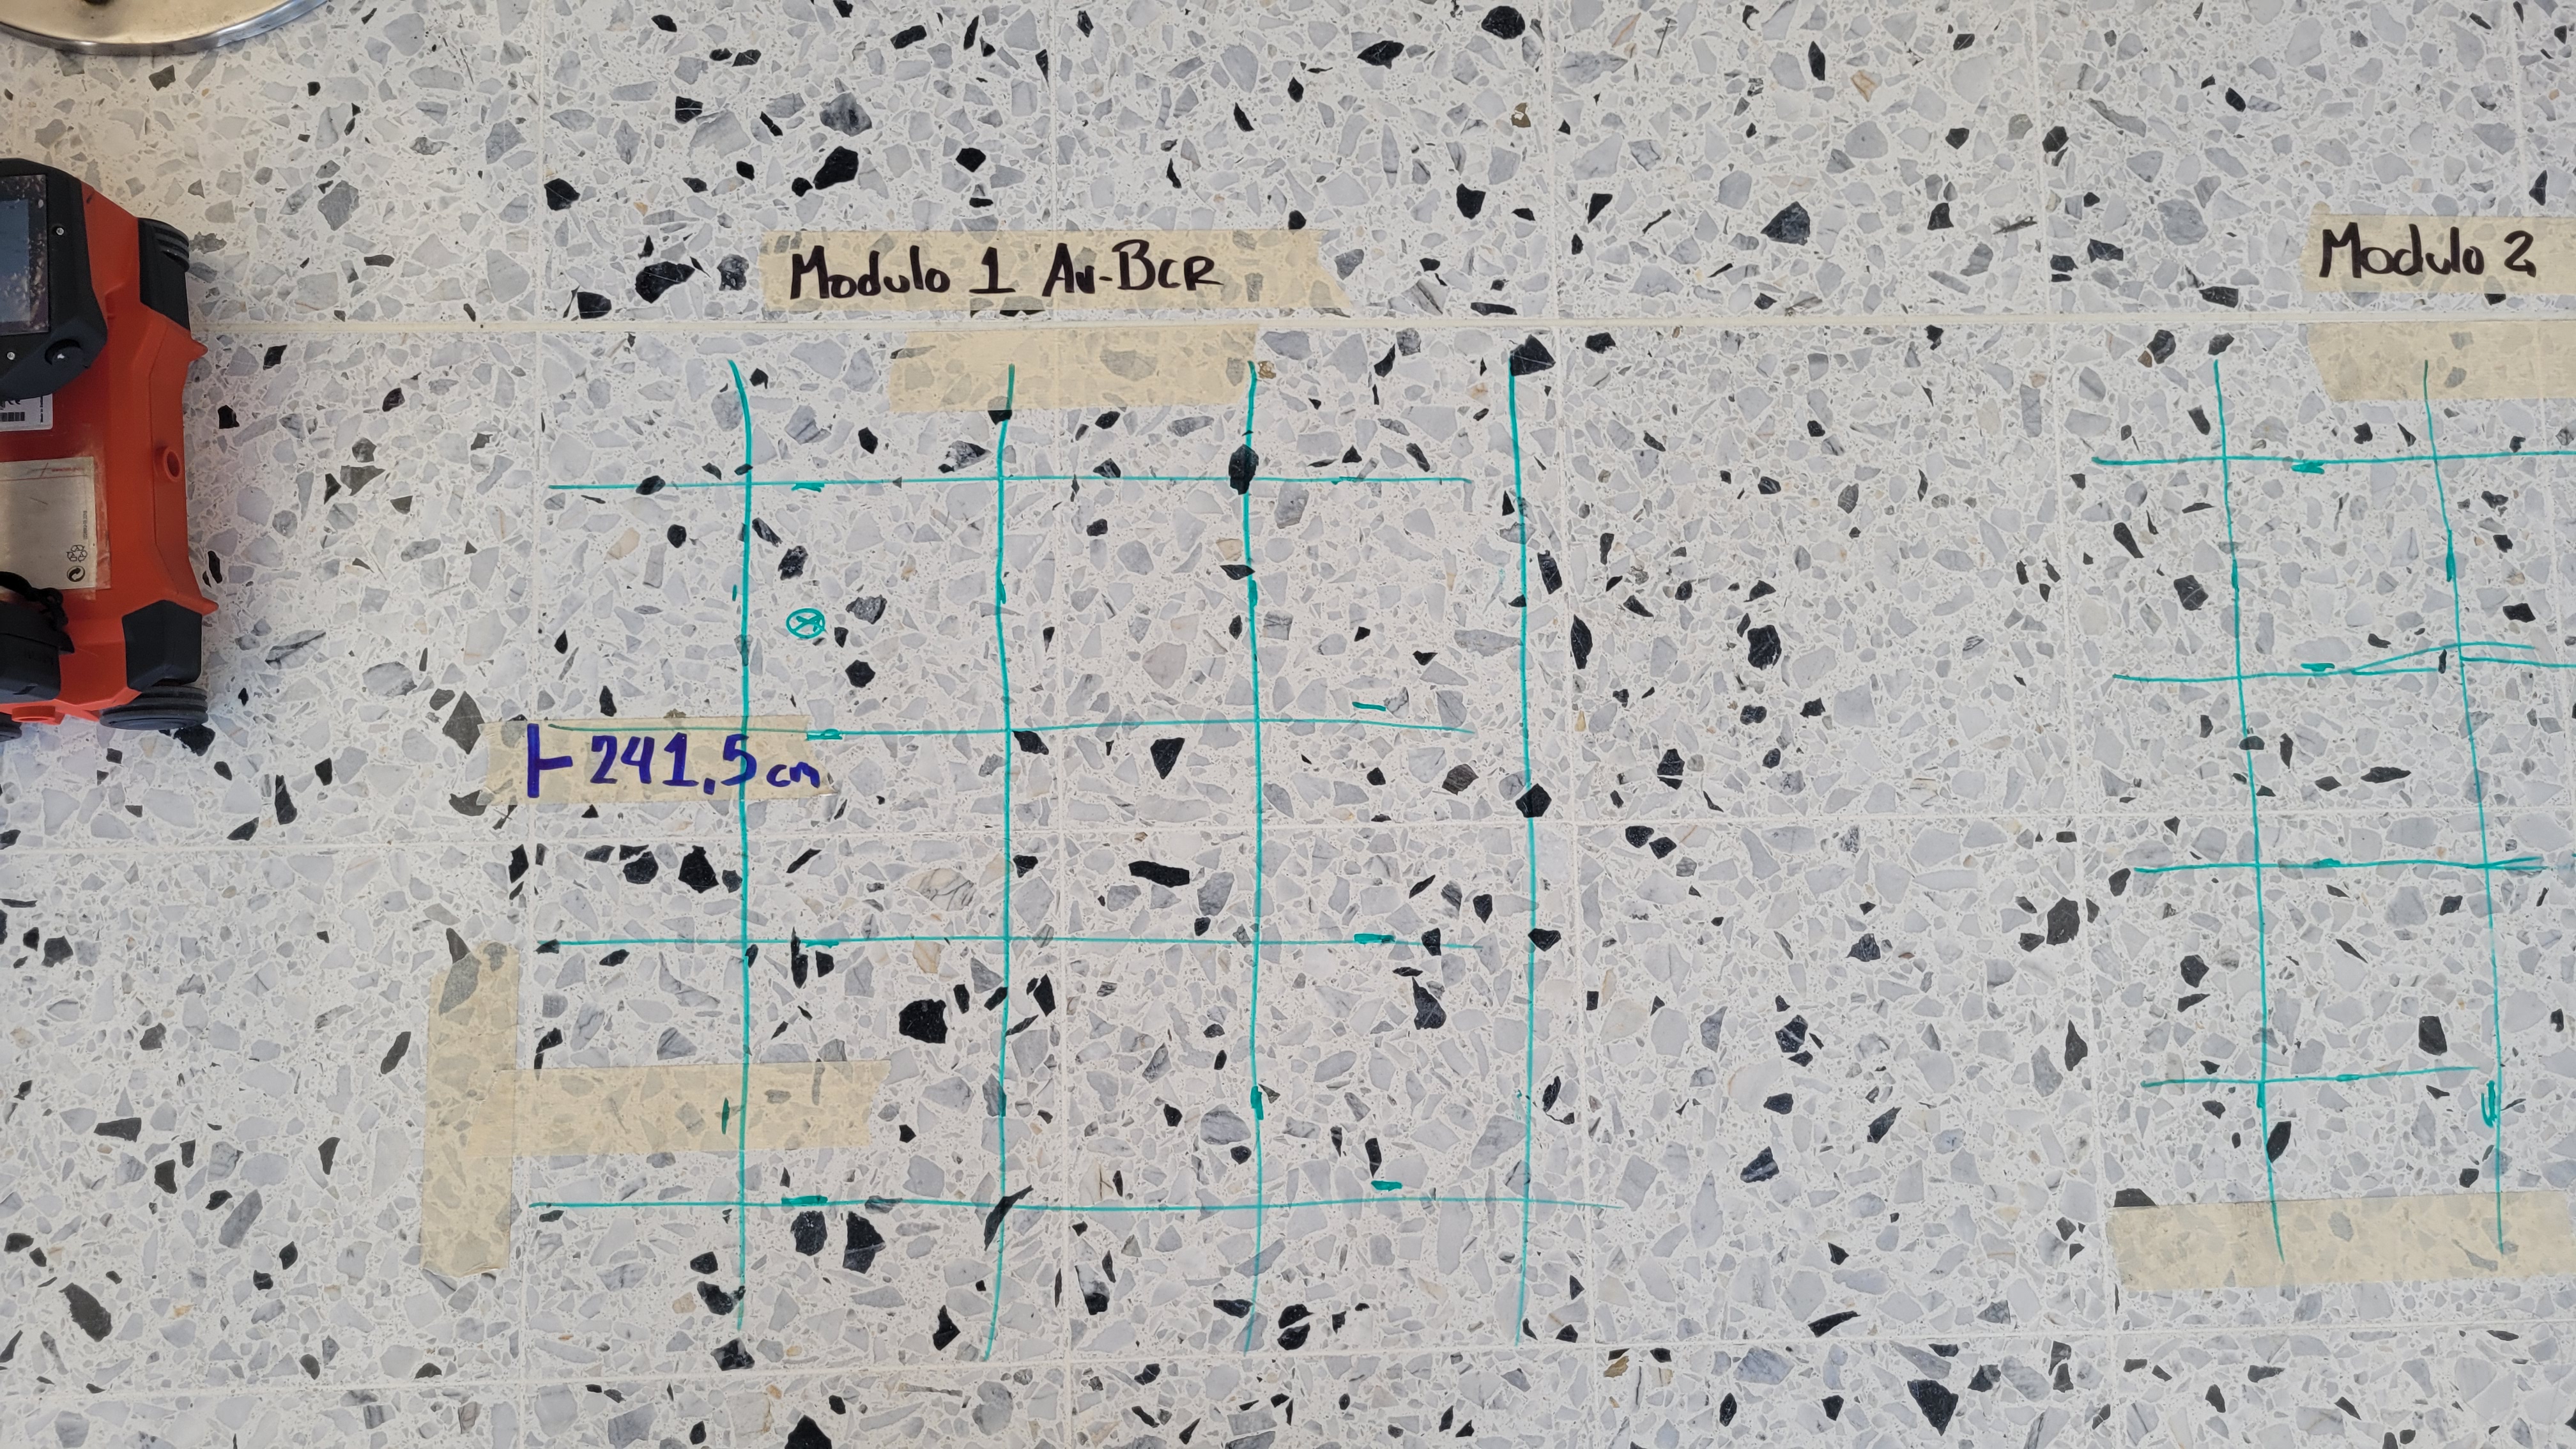 Modulo 1 Av-BCR
Modulo 2
241,5 cm